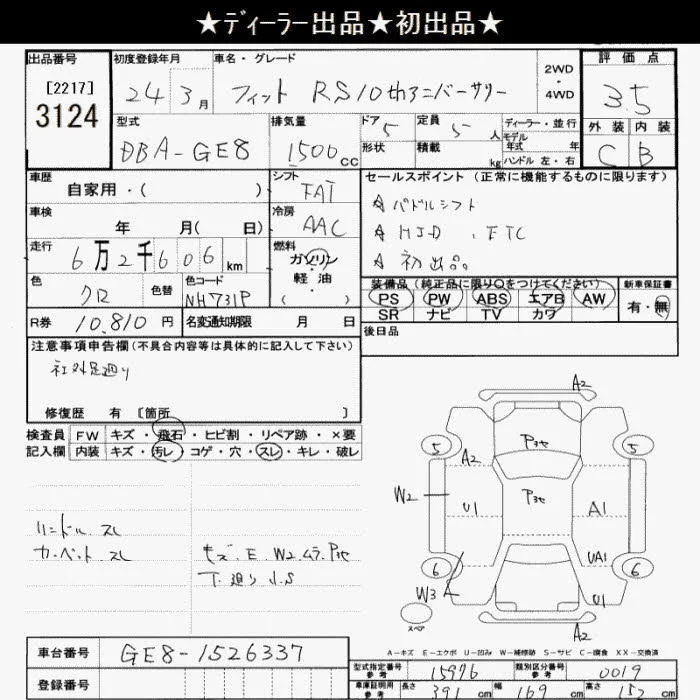 ★ディーラー出品★初出品★
出品番号
[2217]
3124
初度登録年月
24年 3月
車名・グレード
フィット RS10thアニバーサリー
2WD
・
4WD
評価点
3.5
外装 内装
C B
型式
DBA-GE8
排気量
1500cc
ドア 5
形状
定員 5人
積載 kg
ディーラー・並行
モデル年式 年
ハンドル 左・右
車歴
自家用・( )
シフト
FAT
車検
年 月( 日)
冷房
AAC
走行
6万2千606km
燃料
ガソリン
・
軽油
( )
色
クロ
色替
色コード
NH731P
R券 10,810円
名変通知期限 月 日
セールスポイント(正常に機能するものに限ります)
☆パドルシフト
☆HID . ETC
☆初出品。
装備品(純正品に限り○をつけてください)
PS PW ABS エアB AW
SR ナビ TV カワ
新車保証書
有・無
後日品
注意事項申告欄(不具合内容等は具体的に記入して下さい)
社外足廻り
修復歴 有 [箇所 ]
検査員記入欄
FW キズ・飛石・ヒビ割・リペア跡・×要
内装 キズ・汚レ・コゲ・穴・スレ・キレ・破レ
ハンドル スレ
カーペット スレ
キズ.E.W2.ムラ.Pヨセ
下廻り小S
A2
5
A2
Pヨセ
5
W2
U1
Pヨセ
A1
6
UA1
6
W3
U1
スペア
A2
A-キズ E-エクボ U-凹み W-補修跡 S-サビ C-腐食 XX-交換済
車台番号
GE8-1526337
登録番号
型式指定番号 参考
15976
類別区分番号 参考
0019
車庫証明用 参考
長さ 391cm 幅 169cm 高さ 152cm